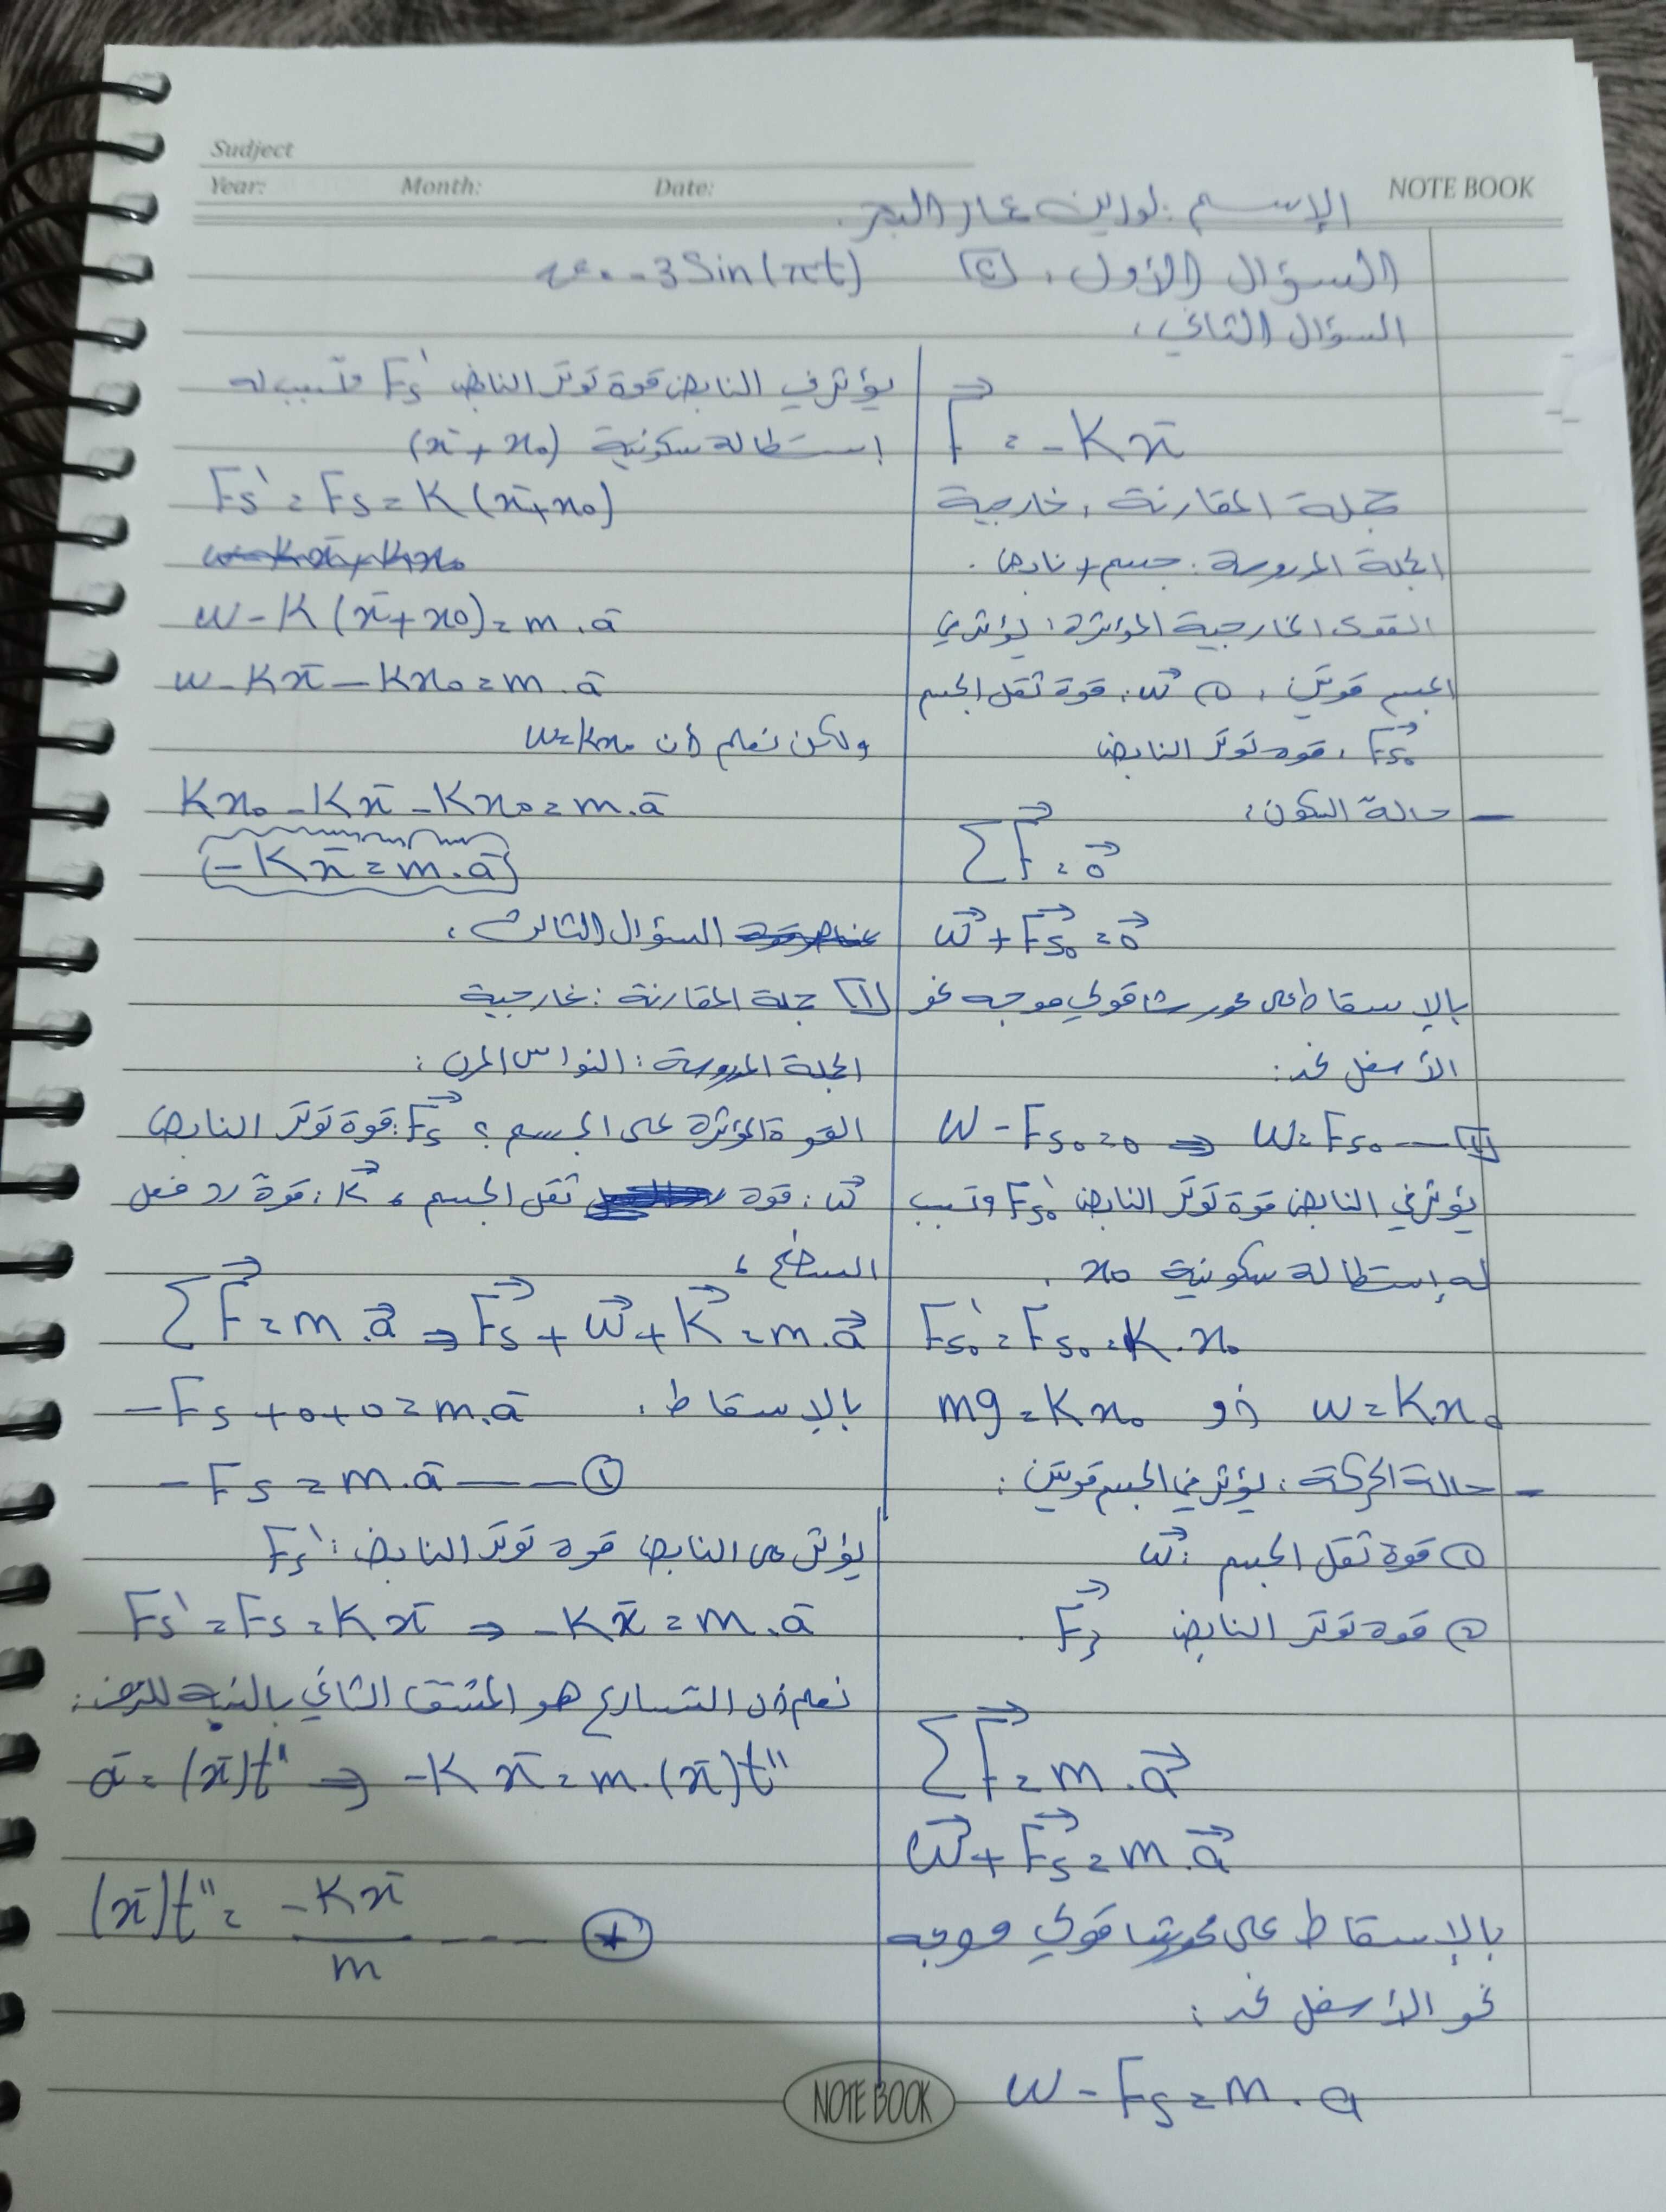 Sudject
Year: Month: Date:
NOTE BOOK
الإسم: لورين عمار البحر.
السؤال الأول: [c] v = -3 Sin(πt)
السؤال الثاني:
F = -K x̄
جملة المقارنة: خارجية
الجملة المدروسة: جسم + نابض.
القوى الخارجية المؤثرة: يؤثر في
الجسم قوتين: ① w⃗: قوة ثقل الجسم
Fs₀: قوة توتر النابض
– حالة السكون:
∑F⃗ = 0⃗
w⃗ + Fs₀⃗ = 0⃗
بالإسقاط على محور شاقولي موجه نحو
الأسفل نجد:
w - Fs₀ = 0 ⇒ w = Fs₀ — [1]
يؤثر في النابض قوة توتر النابض Fs₀' وتسبب
له إستطالة سكونية x₀.
Fs₀' = Fs₀ = K . x₀
w = K x₀ أو mg = K x₀
– حالة الحركة: يؤثر في الجسم قوتين:
① قوة ثقل الجسم: w⃗
② قوة توتر النابض Fs⃗.
∑F⃗ = m . a⃗
w⃗ + Fs⃗ = m . a⃗
بالإسقاط على محور شاقولي موجه
نحو الأسفل نجد:
w - Fs = m . a
يؤثر في النابض قوة توتر النابض Fs' وتسبب له
إستطالة سكونية (x̄ + x₀)
Fs' = Fs = K (x̄ + x₀)
w - K x̄ + K x₀
w - K (x̄ + x₀) = m . ā
w - K x̄ - K x₀ = m . ā
ولكن نعلم أن w = K x₀
K x₀ - K x̄ - K x₀ = m . ā
-K x̄ = m . ā
السؤال الثالث:
[1] جملة المقارنة: خارجية
الجملة المدروسة: النواس المرن:
القوة المؤثرة على الجسم؟ Fs⃗: قوة توتر النابض
w⃗: قوة ثقل الجسم، K⃗: قوة رد فعل
السطح،
∑F⃗ = m . a⃗ ⇒ Fs⃗ + w⃗ + K⃗ = m . a⃗
بالإسقاط: -Fs + 0 + 0 = m . ā
-Fs = m . ā —— ①
يؤثر على النابض قوة توتر النابض: Fs'
Fs' = Fs = K x̄ ⇒ -K x̄ = m . ā
نعلم أن التسارع هو المشتق الثاني بالنسبة للزمن:
ā = (x̄)t'' ⇒ -K x̄ = m . (x̄)t''
(x̄)t'' = -K x̄ / m ---- (*)
NOTE BOOK